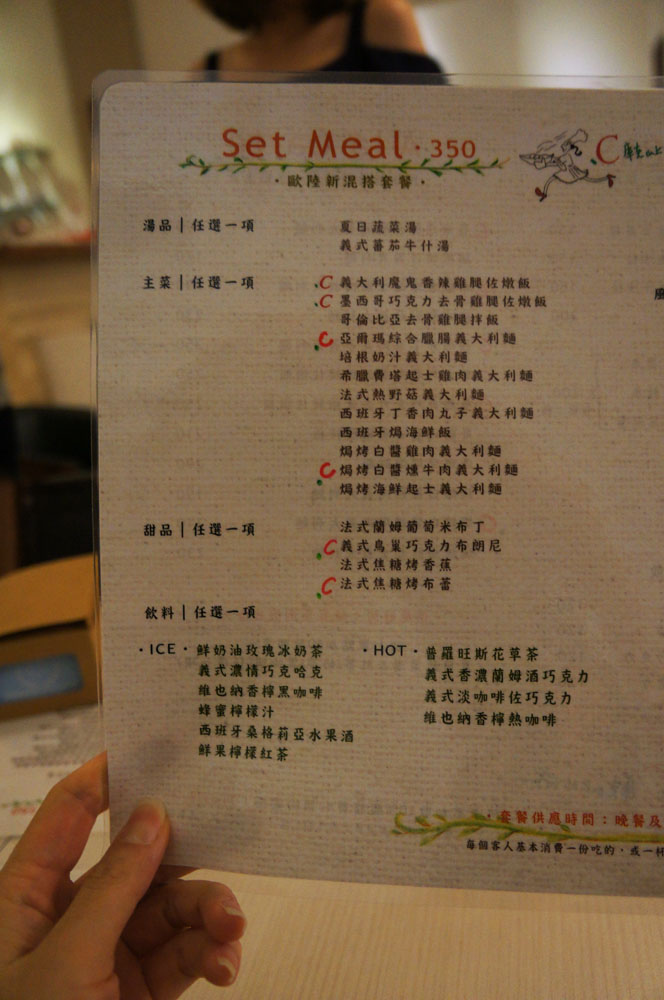 Set Meal · 350
·歐陸新混搭套餐·
湯品 | 任選一項
夏日蔬菜湯
義式蕃茄牛什湯
主菜 | 任選一項
C 義大利魔鬼香辣雞腿佐燉飯
C 墨西哥巧克力去骨雞腿佐燉飯
哥倫比亞去骨雞腿拌飯
C 亞爾瑪綜合臘腸義大利麵
培根奶汁義大利麵
希臘費塔起士雞肉義大利麵
法式熱野菇義大利麵
西班牙丁香肉丸子義大利麵
西班牙焗海鮮飯
焗烤白醬雞肉義大利麵
C 焗烤白醬燻牛肉義大利麵
焗烤海鮮起士義大利麵
甜品 | 任選一項
法式蘭姆葡萄米布丁
C 義式鳥巢巧克力布朗尼
法式焦糖烤香蕉
C 法式焦糖烤布蕾
飲料 | 任選一項
·ICE·
鮮奶油玫瑰冰奶茶
義式濃情巧克哈克
維也納香檸黑咖啡
蜂蜜檸檬汁
西班牙桑格莉亞水果酒
鮮果檸檬紅茶
·HOT·
普羅旺斯花草茶
義式香濃蘭姆酒巧克力
義式淡咖啡佐巧克力
維也納香檸熱咖啡
·套餐供應時間：晚餐及
每個客人基本消費一份吃的，或一杯